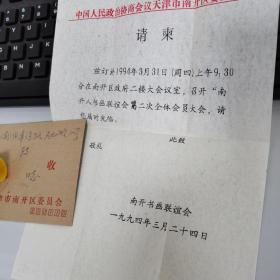 中国人民政治协商会议天津市南开区委
请柬
兹订于1994年3月31日(周四)上午9:30
分在南开区政府二楼大会议室,召开“南
开人书画联谊会第二次全体会员大会,请
您届时光临。
此致
敬礼
南开书画联谊会
一九九四年三月二十四日
收
津市南开区委员会